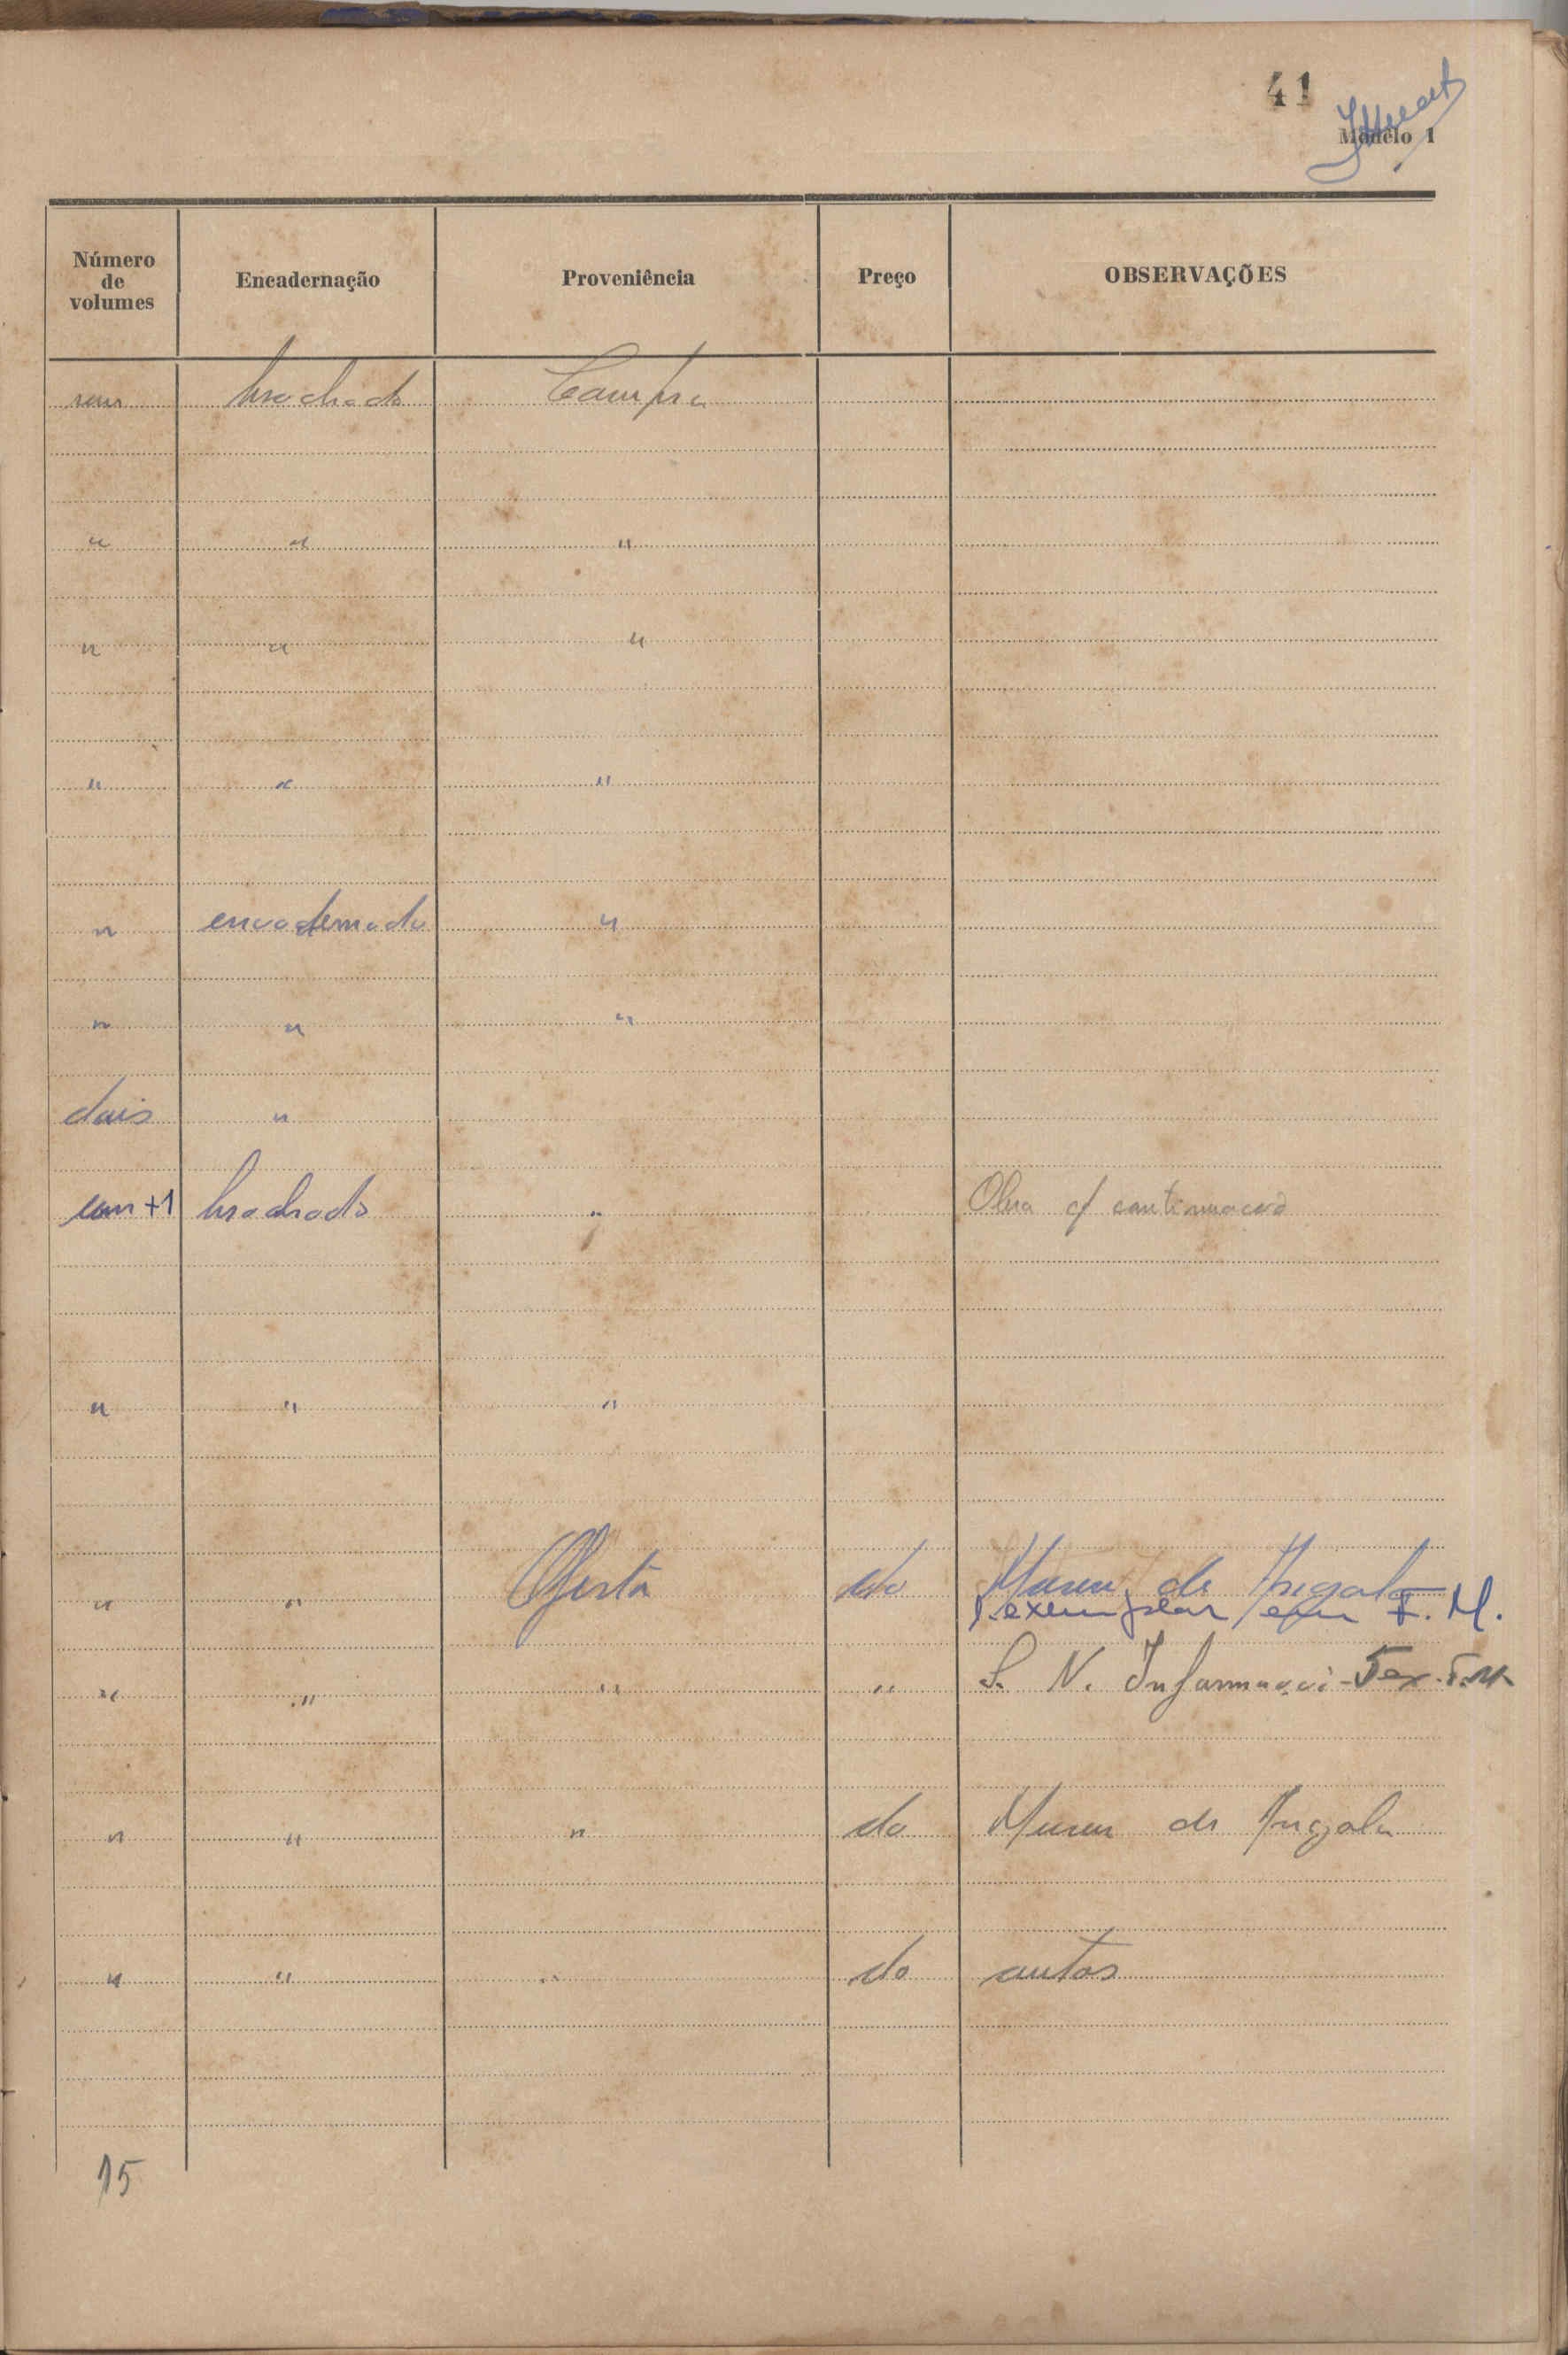 41
Modêlo 1
Número de volumes Encadernação Proveniência Preço OBSERVAÇÕES
um brochado Compra
" " "
" " "
" " "
" encadernado "
" " "
dois "
um +1 brochado " Obra c/ continuação
" " "
" " Oferta do Museu de Angola
1 exemplar em F. M.
" " " " S. N. Informação - 5 ex. F. M.
" " " do Museu de Angola
" " " do autor
15